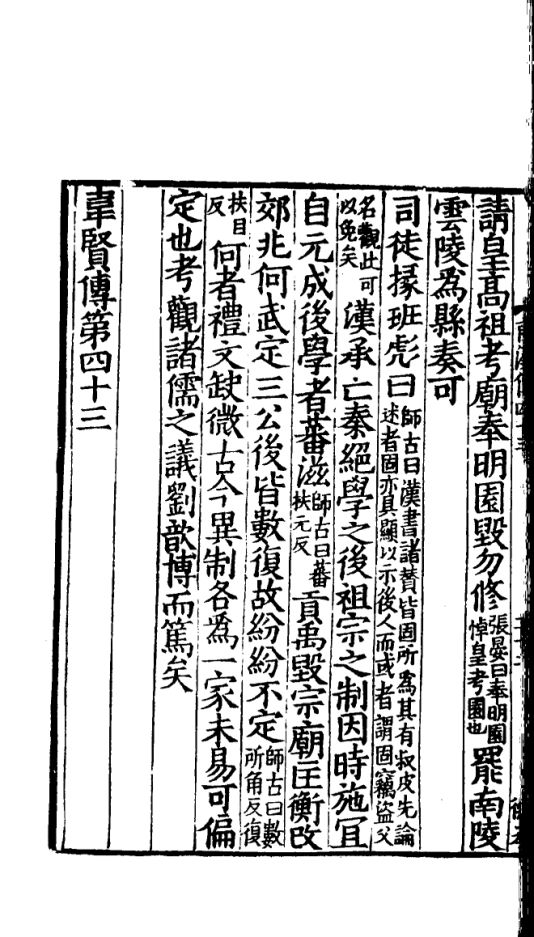 請皇高祖考廟奉明園毀勿修張晏曰奉明園悼皇考園也罷南陵
雲陵爲縣奏可
司徒掾班彪曰師古曰漢書諸贊皆固所爲其有叔皮先論述者固亦具顯以示後人而或者謂固竊盜父
名觀此可以免矣漢承亡秦絕學之後祖宗之制因時施冝
自元成後學者蕃滋師古曰蕃扶元反貢禹毀宗廟匡衡改
郊兆何武定三公後皆數復故紛紛不定師古曰數所角反復
扶目反何者禮文缺微古今異制各爲一家未易可偏
定也考觀諸儒之議劉歆博而篤矣
韋賢傳第四十三